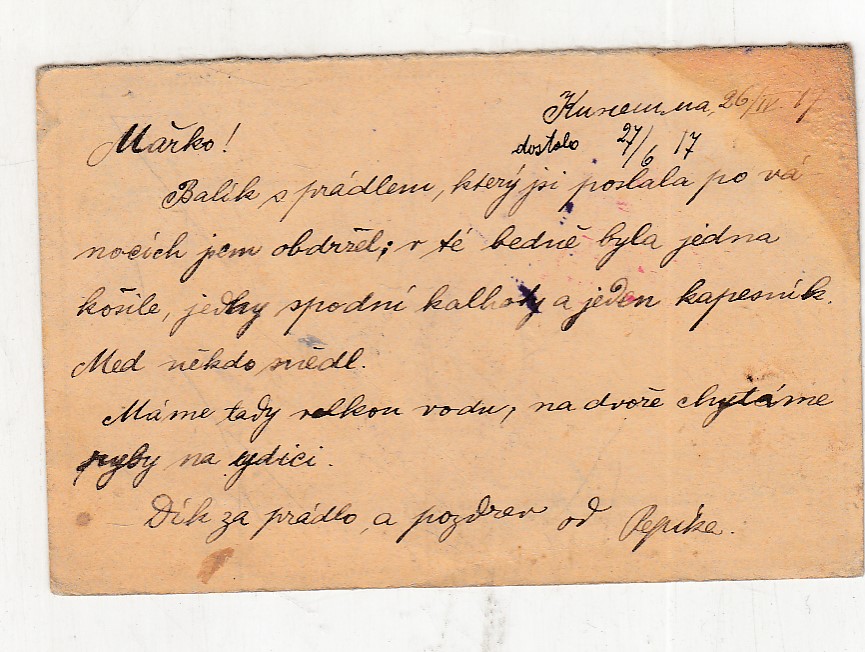 Кинешма, 26/IV 17
Mářko!
dostalo 27/6 17
Balík s prádlem, který jsi poslala po vá-
nocích jsem obdržel; v té bedně byla jedna
košile, jedny spodní kalhoty a jeden kapesník.
Med někdo snědl.
Máme tady velkou vodu, na dvoře chytáme
ryby na udici.
Dík za prádlo a pozdrav od Pepíka.